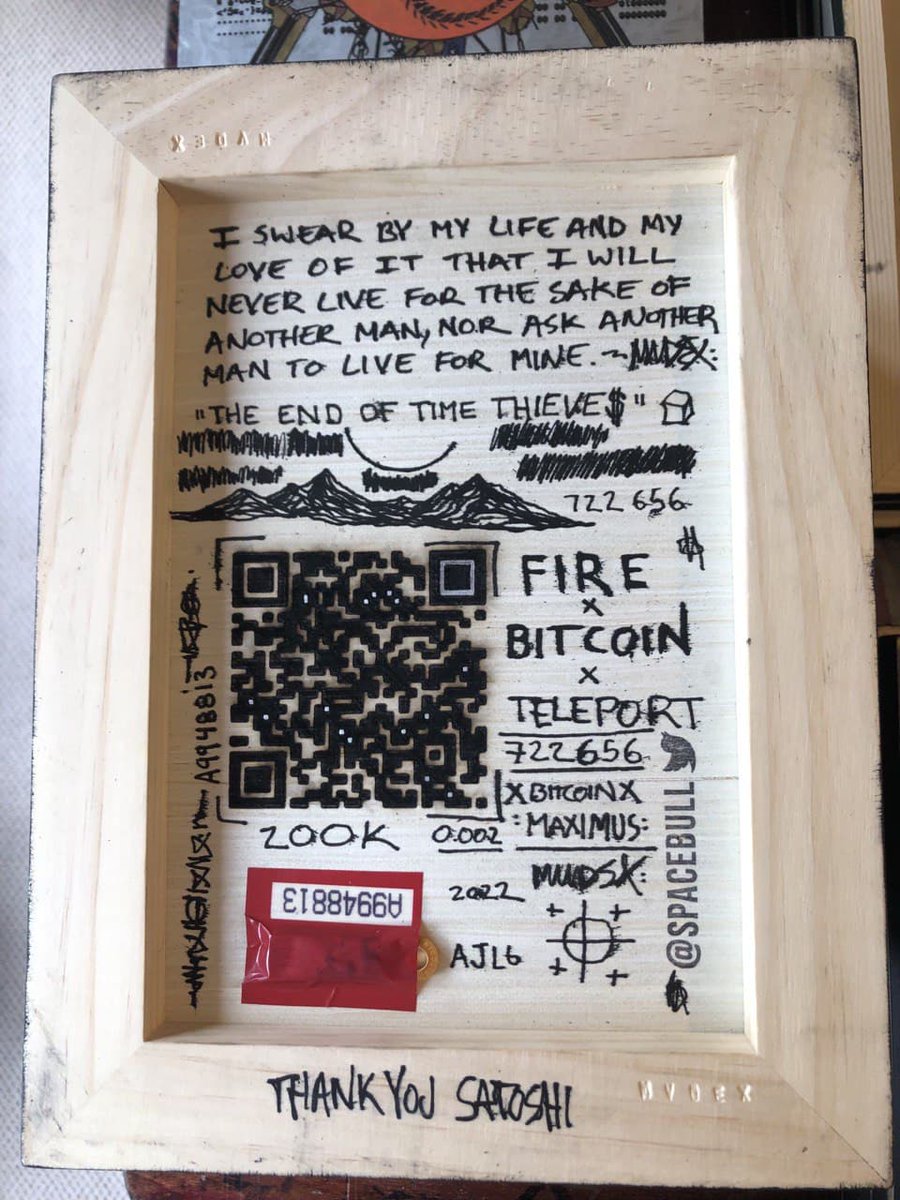 I SWEAR BY MY LIFE AND MY
LOVE OF IT THAT I WILL
NEVER LIVE FOR THE SAKE OF
ANOTHER MAN, NOR ASK ANOTHER
MAN TO LIVE FOR MINE. ~
"THE END OF TIME THIEVE$"
722656
FIRE
X
BITCOIN
X
TELEPORT
722656
XBITCOINX
:MAXIMUS:
@SPACEBULL
A9948813
200K
0.002
A9948813
2022
AJL6
THANK YOU SATOSHI